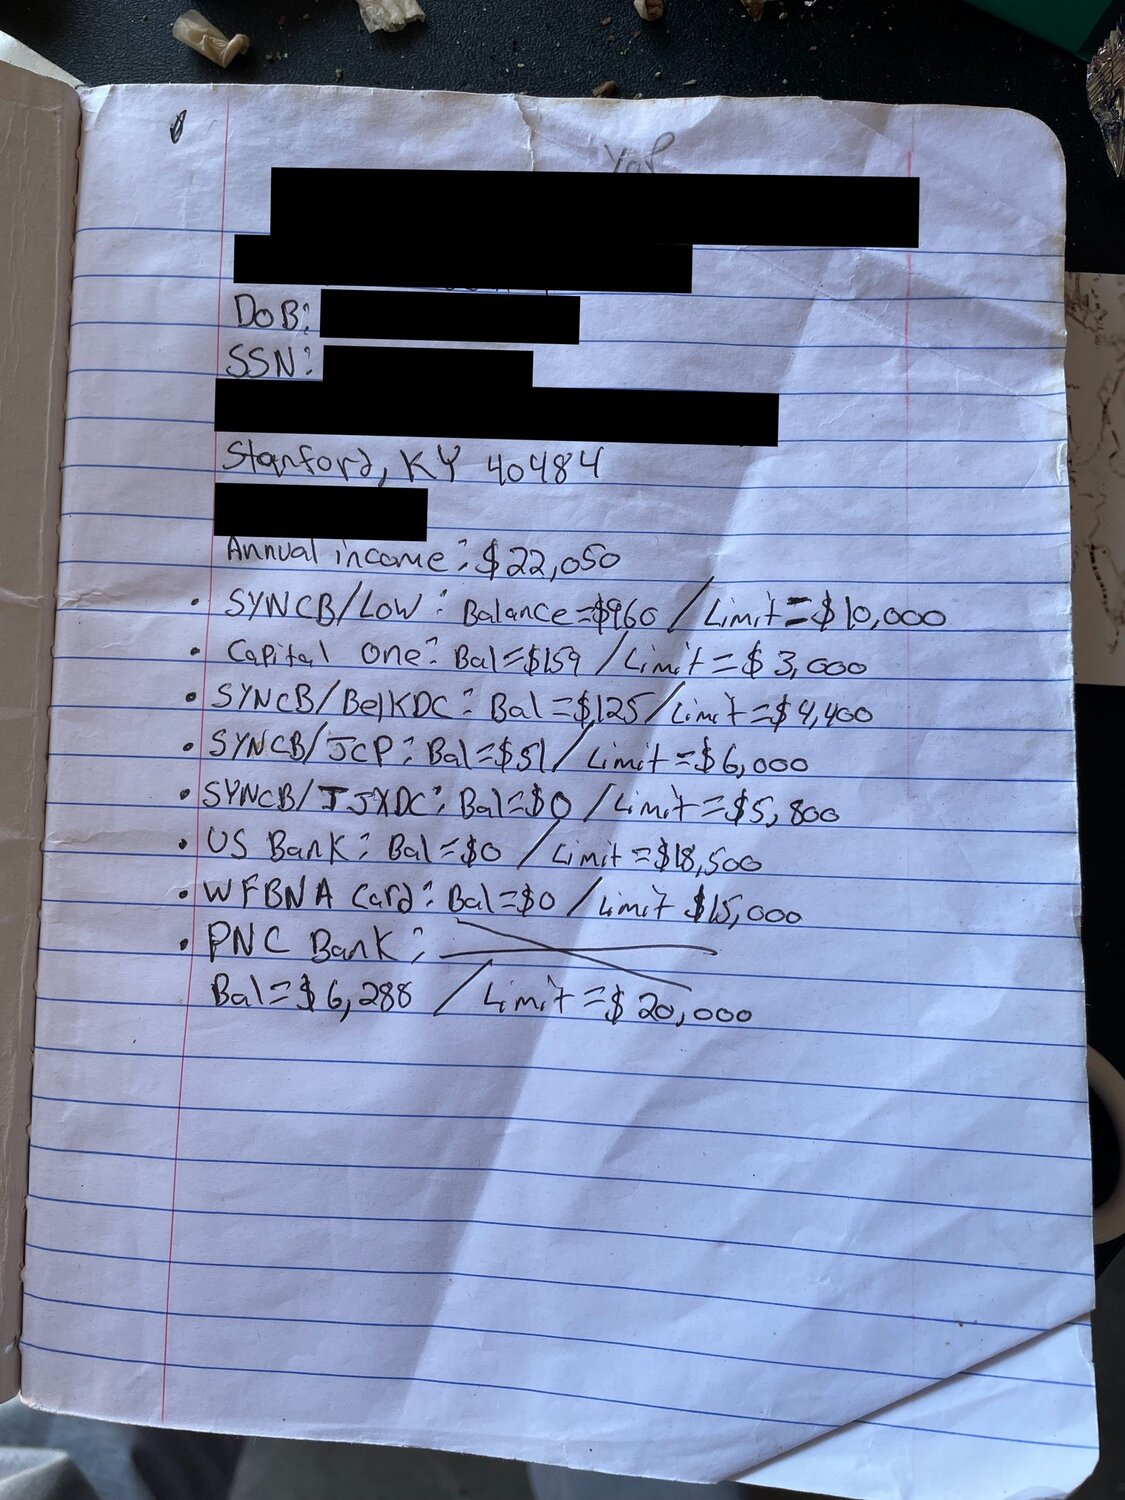 DOB:
SSN:
Stanford, KY 40484
Annual income: $22,050
• SYNCB/Low: Balance=$960 / Limit=$10,000
• Capital One: Bal=$159 / Limit=$3,000
• SYNCB/BelKDC: Bal=$125/Limit=$4,400
• SYNCB/JCP: Bal=$51/ Limit=$6,000
• SYNCB/TJXDC: Bal=$0 /Limit=$5,800
• US Bank: Bal=$0 / Limit=$18,500
• WFBNA Card: Bal=$0 / Limit $15,000
• PNC Bank:
Bal=$6,288 / Limit=$20,000